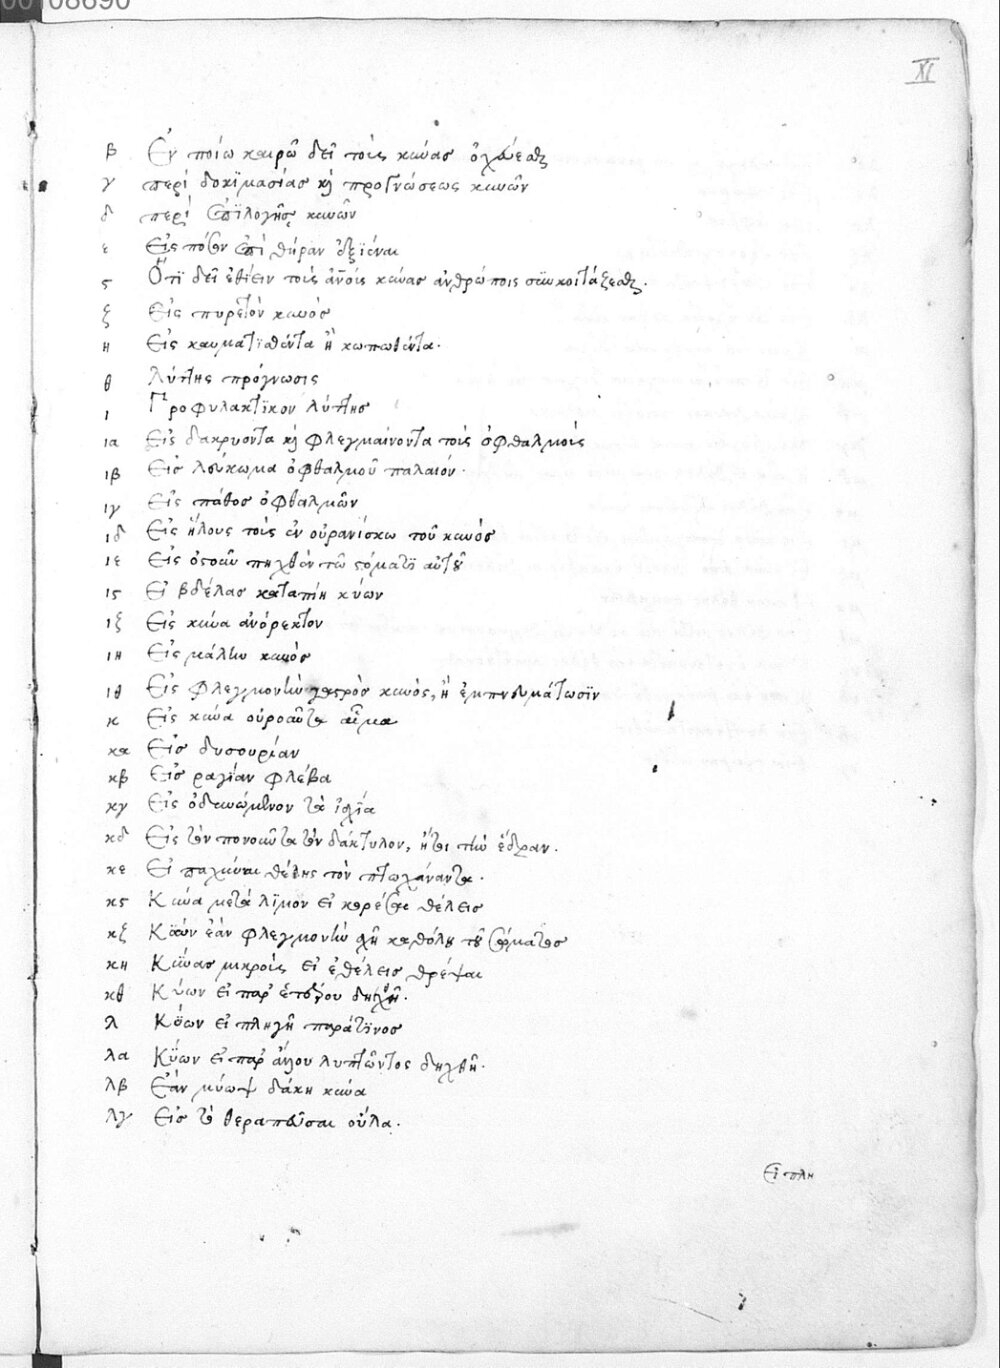 00108690
XI
β Ἐν ποίω καιρῶ δεῖ τοὺς κύνας ὀχεύεσθαι
γ περὶ δοκϊμασίας καὶ προγνώσεως κυνῶν
δ περὶ ἐπϊλογῆς κυνῶν
ε Εἰς πόσον ἐπὶ θήραν ἐξϊέναι
ϛ Ὅτϊ δεῖ ἐθίζειν τοὺς κύνας ἀνθρώποις συγκοιτάζεσθαι.
ζ Εἰς πυρετὸν κυνός
η Εἰς καυματϊσθέντα ἢ κοπωθέντα.
θ Λύττης πρόγνωσις
ι Προφυλακτϊκον λύττης
ια Εἰς δακρυοντα καὶ φλεγμαίνοντα τοὺς ὀφθαλμούς
ιβ Εἰς λεύκωμα ὀφθαλμοῦ παλαιόν.
ιγ Εἰς πάθος ὀφθαλμῶν
ιδ Εἰς ἥλους τοὺς ἐν οὐρανίσκω τοῦ κυνός
ιε Εἰς ὀστοῦν πηχθὲν τῶ στόματϊ αὐτοῦ
ιϛ Εἰ βδέλας καταπίη κύων
ιζ Εἰς κύνα ἀνόρεκτον
ιη Εἰς μάλην κυνός
ιθ Εἰς φλεγμονὴν γαστρὸς κυνός, ἢ ἐμπνευμάτωσϊν
κ Εἰς κύνα οὐροῦντα αἷμα
κα Εἰς δυσουρίαν
κβ Εἰς ραγίαν φλέβα
κγ Εἰς ὀδυνώμενον τὰ ἰσχία
κδ Εἰς τὸν πονοῦντα τὸν δάκτυλον, ἤτοι τὴν ἕδραν.
κε Εἰ παχύναι θέλης τὸν
κϛ Κύνα μετὰ λϊμον εἰ κορέσαι θέλεις
κζ Κύων ἐὰν φλεγμονὴν σχῆ καθόλου τοῦ σώματος
κη Κύνας μικροὺς εἰ ἐθέλεις θρέψαι
κθ Κύων εἰ παρ' ἑτέρου δηχθῆ.
λ Κύων εἰ πληγῆ παρά τϊνος
λα Κύων εἰ παρ' ἄλλου λυττῶντος δηχθῆ.
λβ Ἐὰν μύωψ δάκη κύνα
λγ Εἰς τὸ θεραπεῦσαι οὖλα.
Εἰ πλη